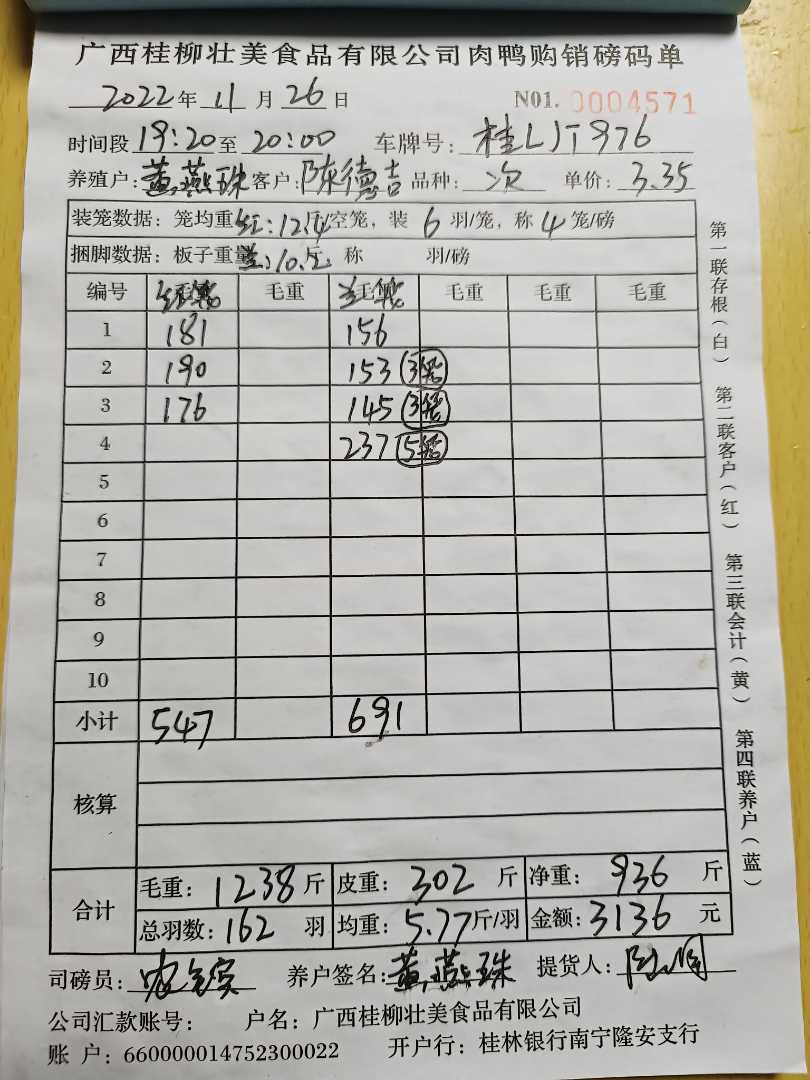 广西桂柳壮美食品有限公司肉鸭购销磅码单
2022年11月26日 N01. 0004571
时间段19:20至20:00 车牌号:桂LJT976
养殖户:黄燕珠 客户:陈德吉 品种:次 单价:3.35
装笼数据:笼均重红:12.4斤/空笼,装6羽/笼,称4笼/磅
捆脚数据:板子重量 斤 称 羽/磅
编号 毛重 毛重 毛重 毛重
1 181 156
2 190 153 3笼
3 176 145 3笼
4 237 5笼
5
6
7
8
9
10
小计 547 691
核算
合计 毛重:1238斤 皮重:302斤 净重:936斤
总羽数:162羽 均重:5.77斤/羽 金额:3136元
司磅员: 养户签名:黄燕珠 提货人:
公司汇款账号: 户名:广西桂柳壮美食品有限公司
账户:660000014752300022 开户行:桂林银行南宁隆安支行
第一联存根(白)
第二联客户(红)
第三联会计(黄)
第四联养户(蓝)